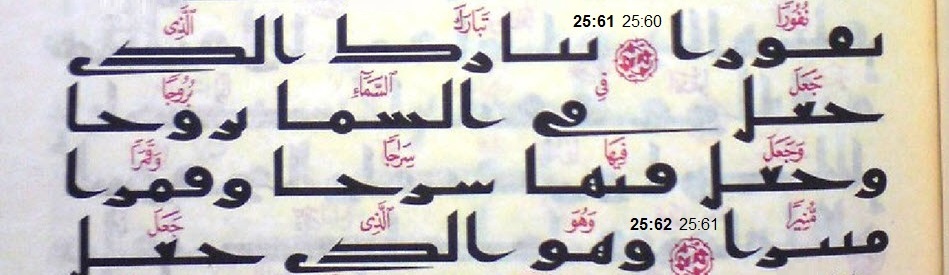 نُفُورًا 25:60 25:61 تَبَارَكَ ٱلَّذِى
نفورا تبارك الذى
جَعَلَ فِى ٱلسَّمَآءِ بُرُوجًا
جعل فى السما بروجا
وَجَعَلَ فِيهَا سِرَٰجًا وَقَمَرًا
وجعل فيها سرجا وقمرا
مُّنِيرًا 25:61 25:62 وَهُوَ ٱلَّذِى جَعَلَ
منيرا وهو الذى جعل